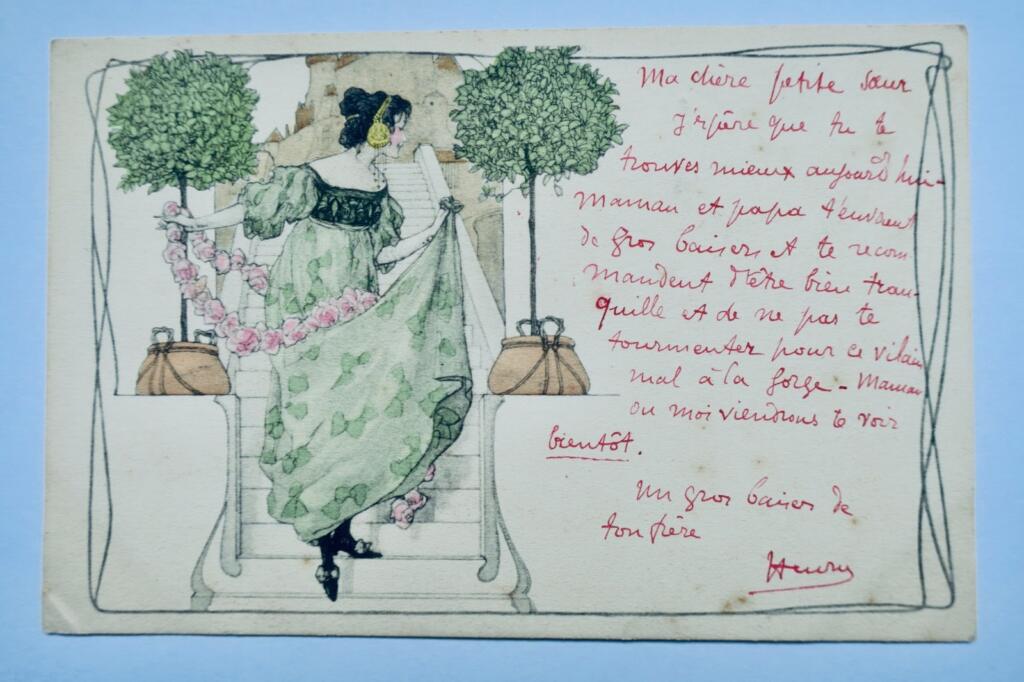 Ma chère petite sœur
J'espère que tu te
trouves mieux aujourd'hui-
Maman et papa t'envoient
de gros baisers et te recom
mandent d'être bien tran-
quille et de ne pas te
tourmenter pour ce vilain
mal à la gorge - Maman
ou moi viendrons te voir
bientôt.
Un gros baiser de
ton frère
Henry